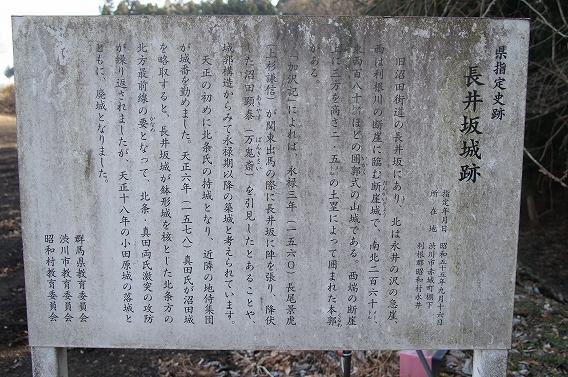 県指定史跡
長井坂城跡
指定年月日 昭和五十五年九月十六日
所在地 渋川市赤城町棚下
利根郡昭和村永井
旧沼田街道の長井坂にあり、北は永井の沢の急崖、
西は利根川の断崖に臨む断崖城で、南北二百六十㍍、
東西百八十㍍ほどの囲郭式の山城である。西端の断崖
上に三方を高さ二・五㍍の土塁によって囲まれた本郭
がある。
「加沢記」によれば、永禄三年(一五六〇)長尾景虎
(上杉謙信)が関東出馬の際に長井坂に陣を張り、降伏
した沼田顕泰(万鬼斎)を引見したとあることや、
城郭構造からみて永禄期以降の築城と考えられています。
天正の初めに北条氏の持城となり、近隣の地侍集団
が城番を勤めました。天正六年(一五七八)真田氏が沼田城
を略取すると、長井坂城が鉢形城を核とした北条方の
北方最前線の要となって、北条・真田両氏激突の攻防
が繰り返されましたが、天正十八年の小田原城の落城と
ともに、廃城となりました。
群馬県教育委員会
渋川市教育委員会
昭和村教育委員会